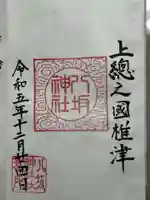 上總之國椎津
八坂
神社
令和五年十二月十四日